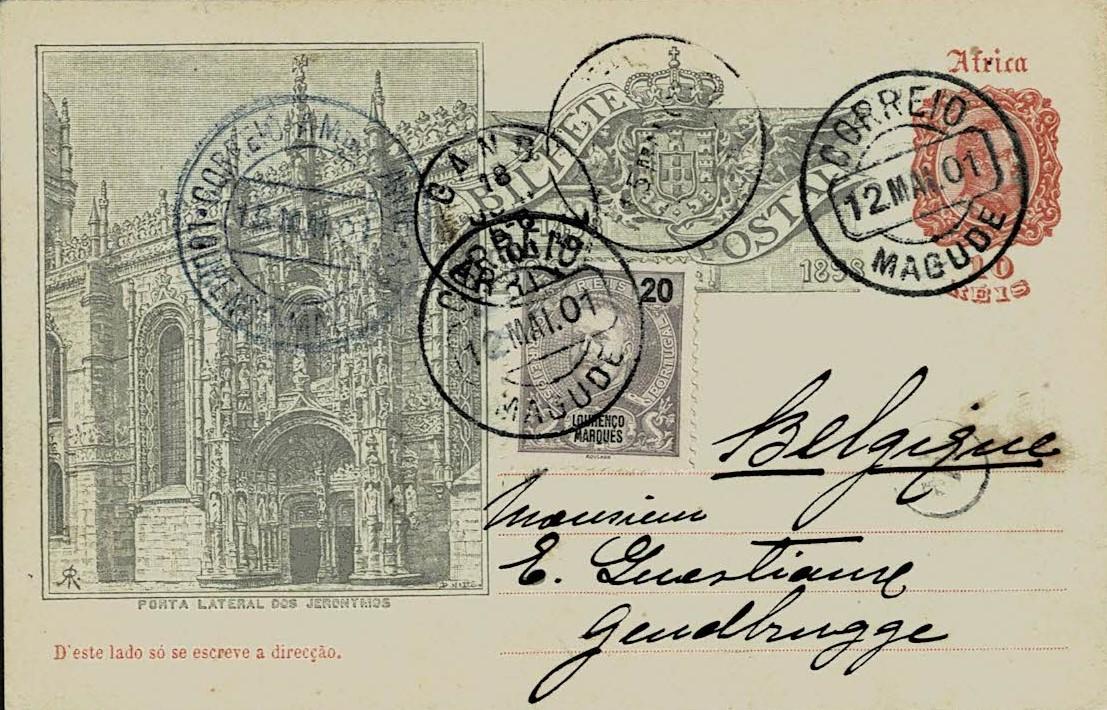 Africa
BILHETE POSTAL
1898
20
REIS
CORREIO
12.MAI.01
MAGUDE
CORREIO
12.MAI.01
MAGUDE
GAND
18
CORREIO
20
REIS
PORTUGAL
LOURENÇO
MARQUES
Belgique
Monsieur
E.
Gendbrugge
PORTA LATERAL DOS JERONYMOS
D'este lado só se escreve a direcção.